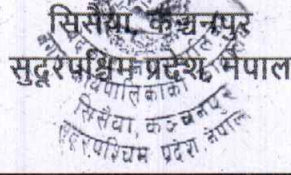 सिसैया, कञ्चनपुर
सुदूरपश्चिम प्रदेश, नेपाल
सिसैया, कञ्चनपुर
सुदूरपश्चिम प्रदेश, नेपाल